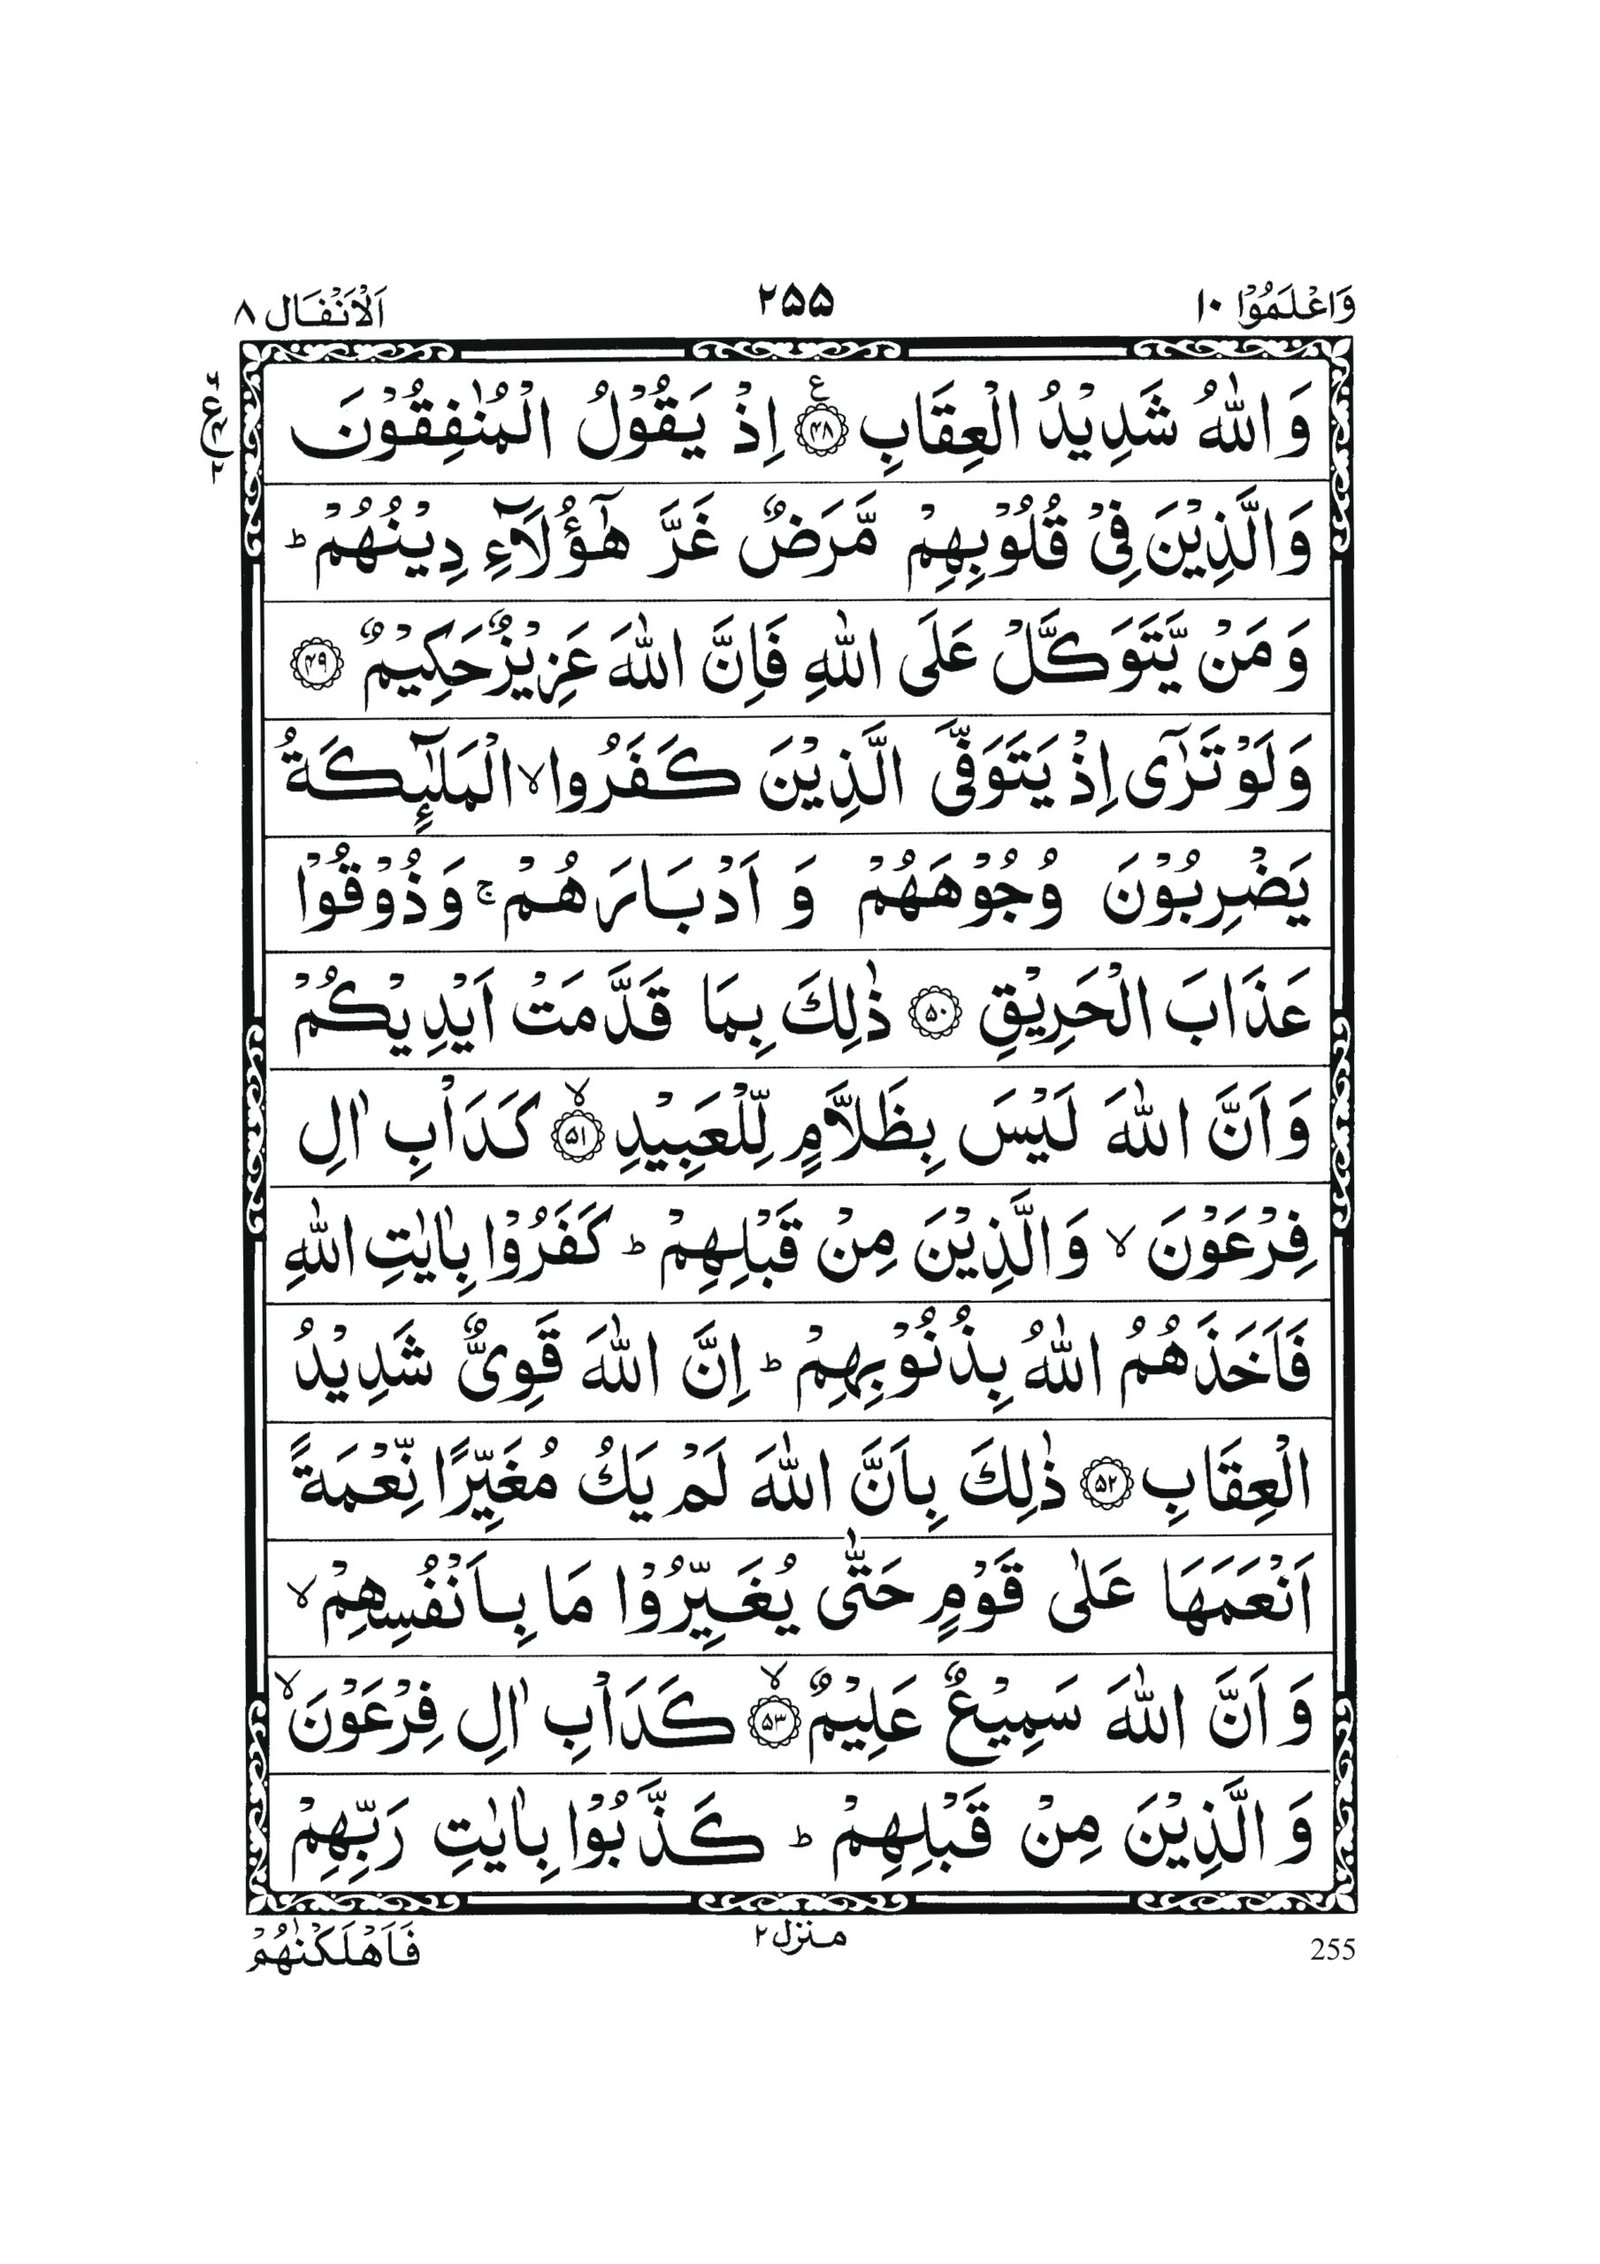 وَاعْلَمُوْا ١٠
٢٥٥
اَلْاَنْفَال ٨
وَاللّٰهُ شَدِيْدُ الْعِقَابِ ۝٤٨ ع اِذْ يَقُوْلُ الْمُنٰفِقُوْنَ
وَالَّذِيْنَ فِيْ قُلُوْبِهِمْ مَّرَضٌ غَرَّ هٰٓؤُلَآءِ دِيْنُهُمْ ؕ
وَمَنْ يَّتَوَكَّلْ عَلَى اللّٰهِ فَاِنَّ اللّٰهَ عَزِيْزٌ حَكِيْمٌ ۝٤٩
وَلَوْ تَرٰٓى اِذْ يَتَوَفَّى الَّذِيْنَ كَفَرُوا ۙ الْمَلٰٓئِكَةُ
يَضْرِبُوْنَ وُجُوْهَهُمْ وَ اَدْبَارَهُمْ ۚ وَذُوْقُوْا
عَذَابَ الْحَرِيْقِ ۝٥٠ ذٰلِكَ بِمَا قَدَّمَتْ اَيْدِيْكُمْ
وَاَنَّ اللّٰهَ لَيْسَ بِظَلَّامٍ لِّلْعَبِيْدِ ۙ۝٥١ كَدَاْبِ اٰلِ
فِرْعَوْنَ ۙ وَالَّذِيْنَ مِنْ قَبْلِهِمْ ؕ كَفَرُوْا بِاٰيٰتِ اللّٰهِ
فَاَخَذَهُمُ اللّٰهُ بِذُنُوْبِهِمْ ؕ اِنَّ اللّٰهَ قَوِيٌّ شَدِيْدُ
الْعِقَابِ ۝٥٢ ذٰلِكَ بِاَنَّ اللّٰهَ لَمْ يَكُ مُغَيِّرًا نِّعْمَةً
اَنْعَمَهَا عَلٰى قَوْمٍ حَتّٰى يُغَيِّرُوْا مَا بِاَنْفُسِهِمْ ۙ
وَاَنَّ اللّٰهَ سَمِيْعٌ عَلِيْمٌ ۙ۝٥٣ كَدَاْبِ اٰلِ فِرْعَوْنَ ۙ
وَالَّذِيْنَ مِنْ قَبْلِهِمْ ؕ كَذَّبُوْا بِاٰيٰتِ رَبِّهِمْ
255
منزل ٢
فَاَهْلَكْنٰهُمْ